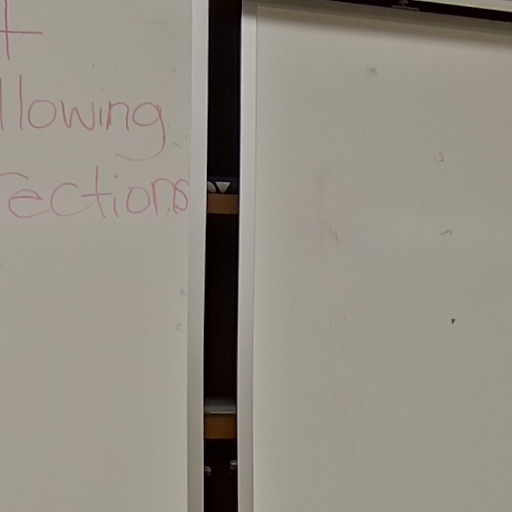 t
llowing
rections